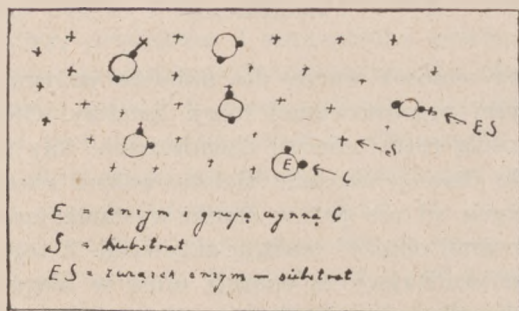 ES
S
E
C
E = enzym z grupą czynną C
S = substrat
ES = związek enzym — substrat